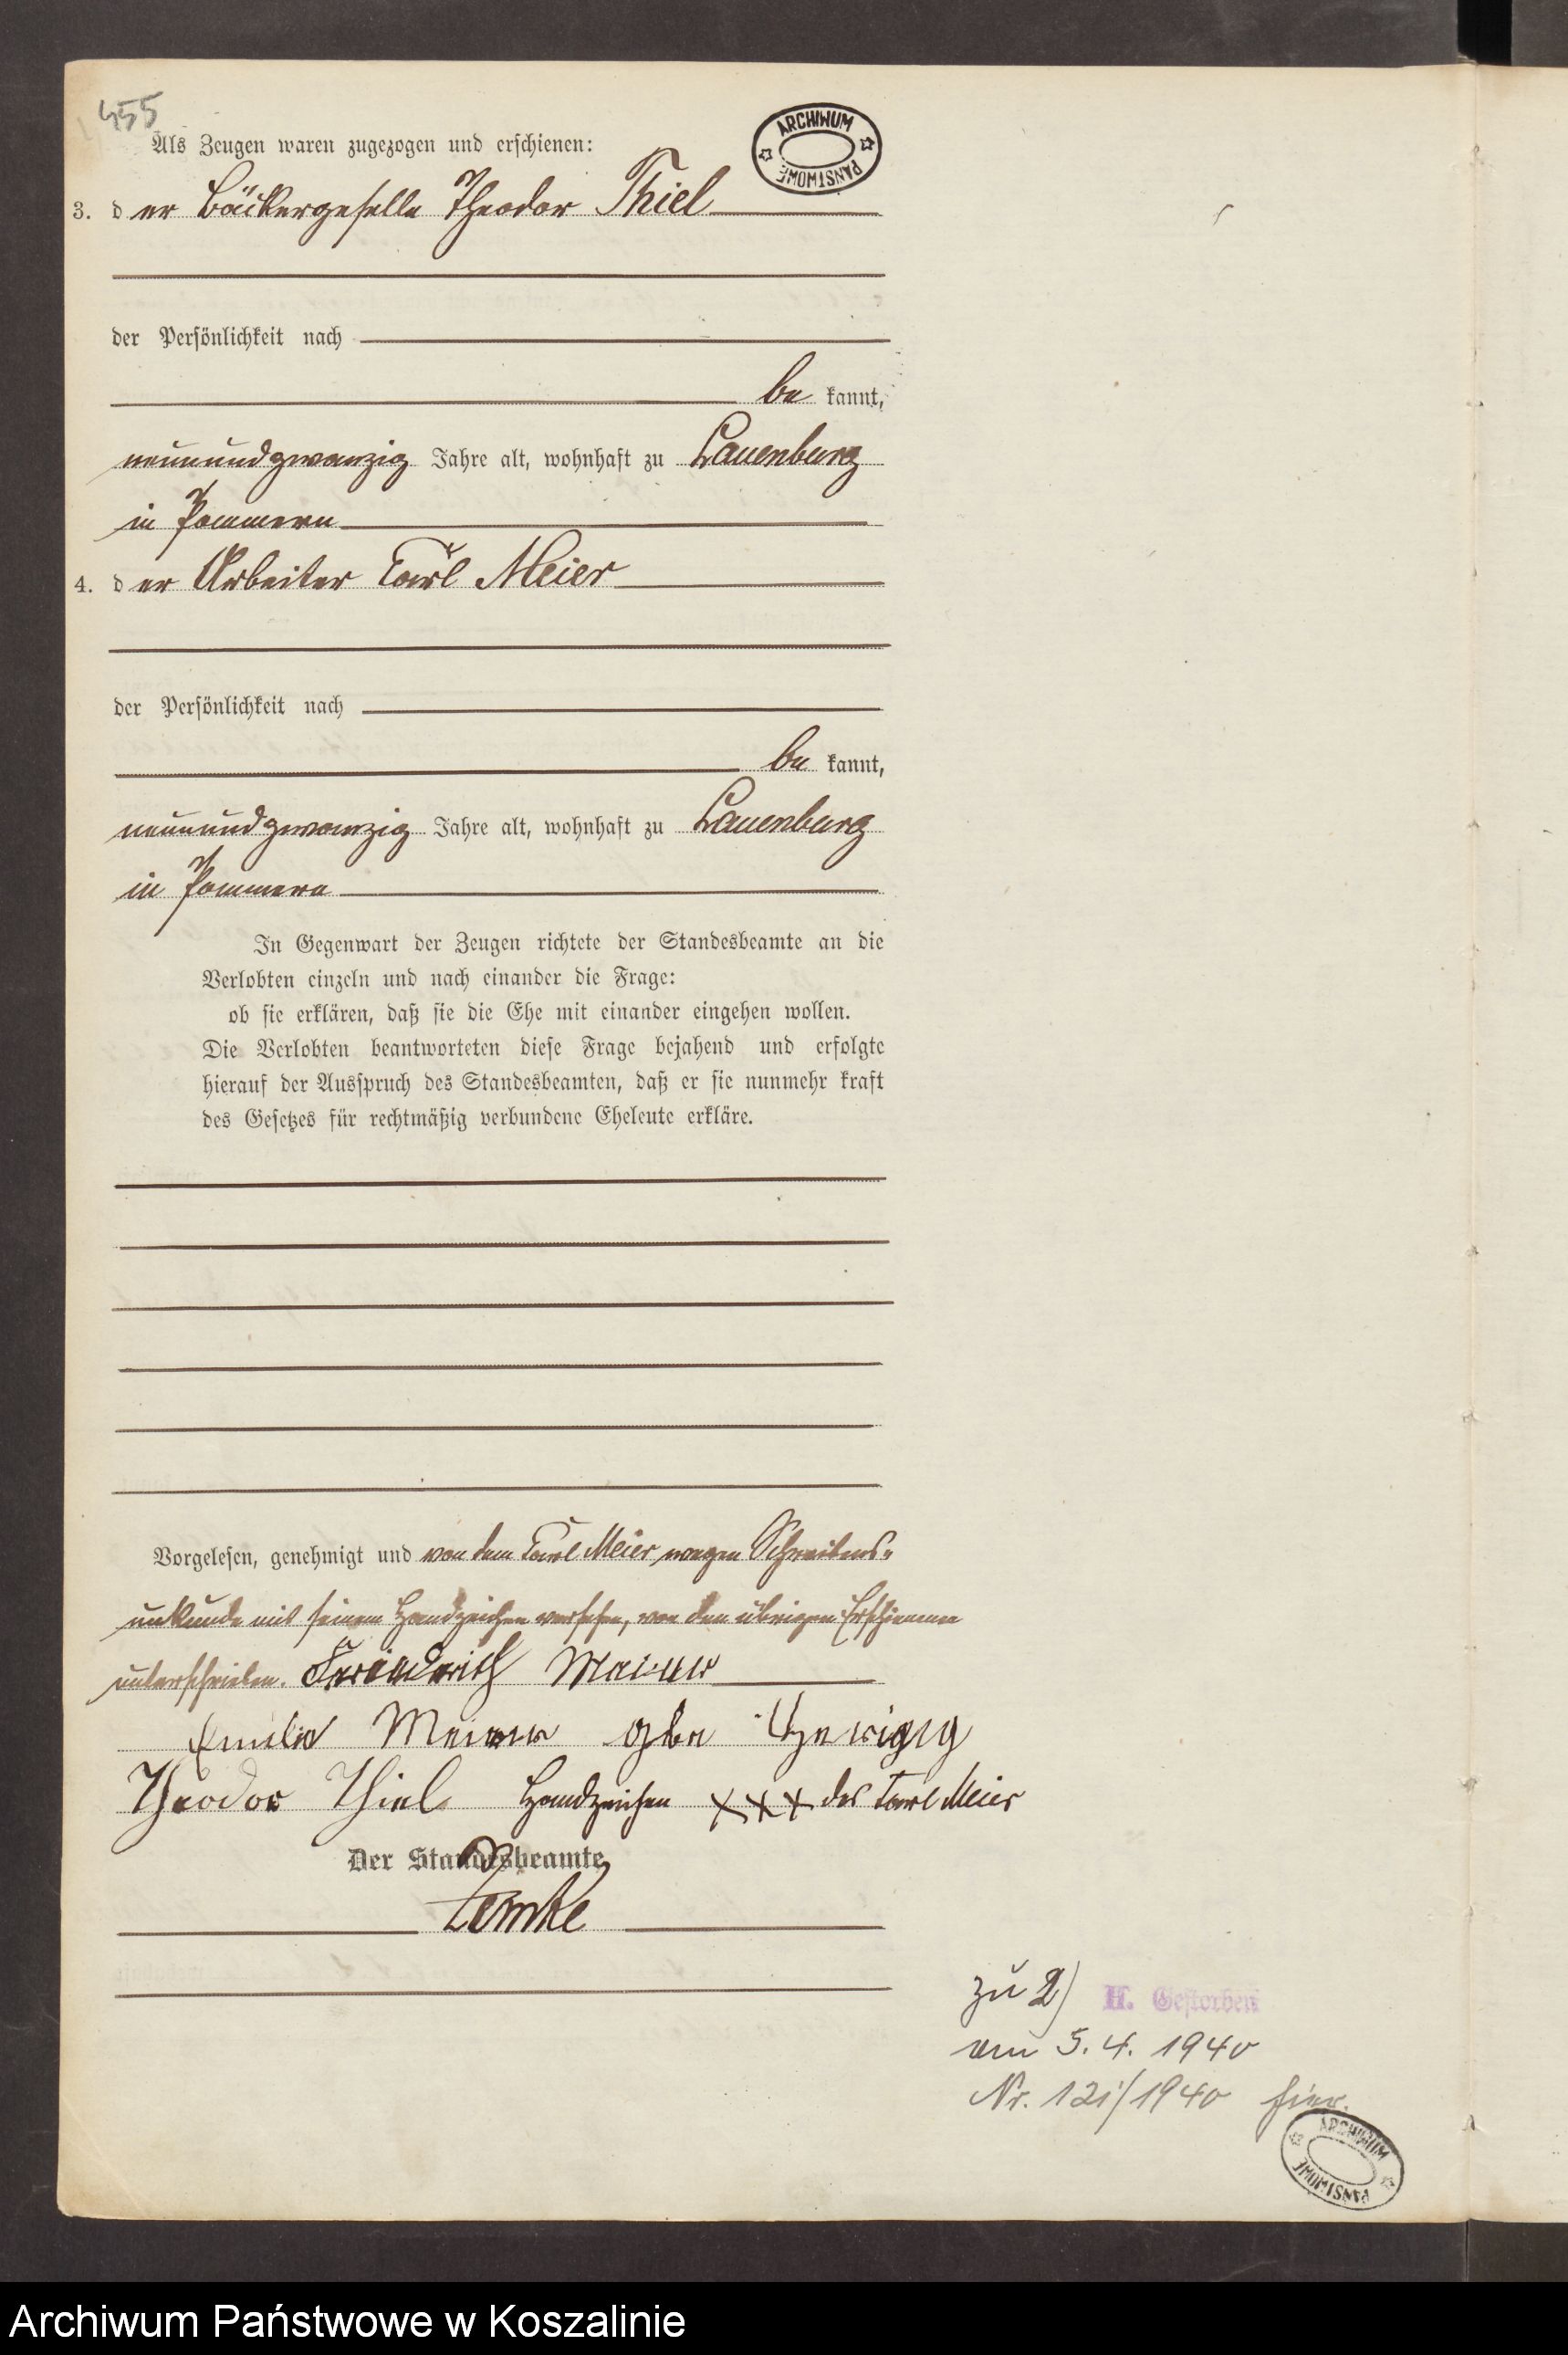 455
Als Zeugen waren zugezogen und erschienen:
ARCHIWUM PAŃSTWOWE
3. der Bäckergeselle Theodor Thiel
der Persönlichkeit nach
be kannt,
neunundzwanzig Jahre alt, wohnhaft zu Lauenburg
in Pommern
4. der Arbeiter Carl Meier
der Persönlichkeit nach
be kannt,
neunundzwanzig Jahre alt, wohnhaft zu Lauenburg
in Pommern
In Gegenwart der Zeugen richtete der Standesbeamte an die
Verlobten einzeln und nach einander die Frage:
ob sie erklären, daß sie die Ehe mit einander eingehen wollen.
Die Verlobten beantworteten diese Frage bejahend und erfolgte
hierauf der Ausspruch des Standesbeamten, daß er sie nunmehr kraft
des Gesetzes für rechtmäßig verbundene Eheleute erkläre.
Vorgelesen, genehmigt und von dem Carl Meier wegen Schreibens-
unkunde mit seinem Handzeichen versehen, von den übrigen Erschienenen
unterschrieben. Friederich
Emilie gbe
Theodor Thiel Handzeichen XXX des Carl Meier
Der Standesbeamte
Lemke
zu 2) H. Gestorben
am 5. 4. 1940
Nr. 121/1940 hier.
ARCHIWUM PAŃSTWOWE
Archiwum Państwowe w Koszalinie